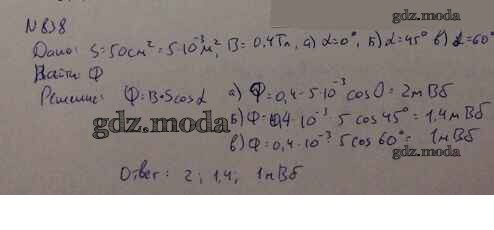 N 838
gdz.moda
Дано: S=50см²=5·10⁻³м², B=0,4Тл, а) α=0°, Б) α=45° в) α=60°
Найти Ф
Решение: Ф=B·Scosα а) Ф=0,4·5·10⁻³ cos0=2мВб
Б) Ф=0,4·10⁻³ 5 cos45°=1,4мВб
gdz.moda
в) Ф=0,4·10⁻³ 5 cos60°=1мВб
gdz.moda
Ответ: 2; 1,4; 1мВб